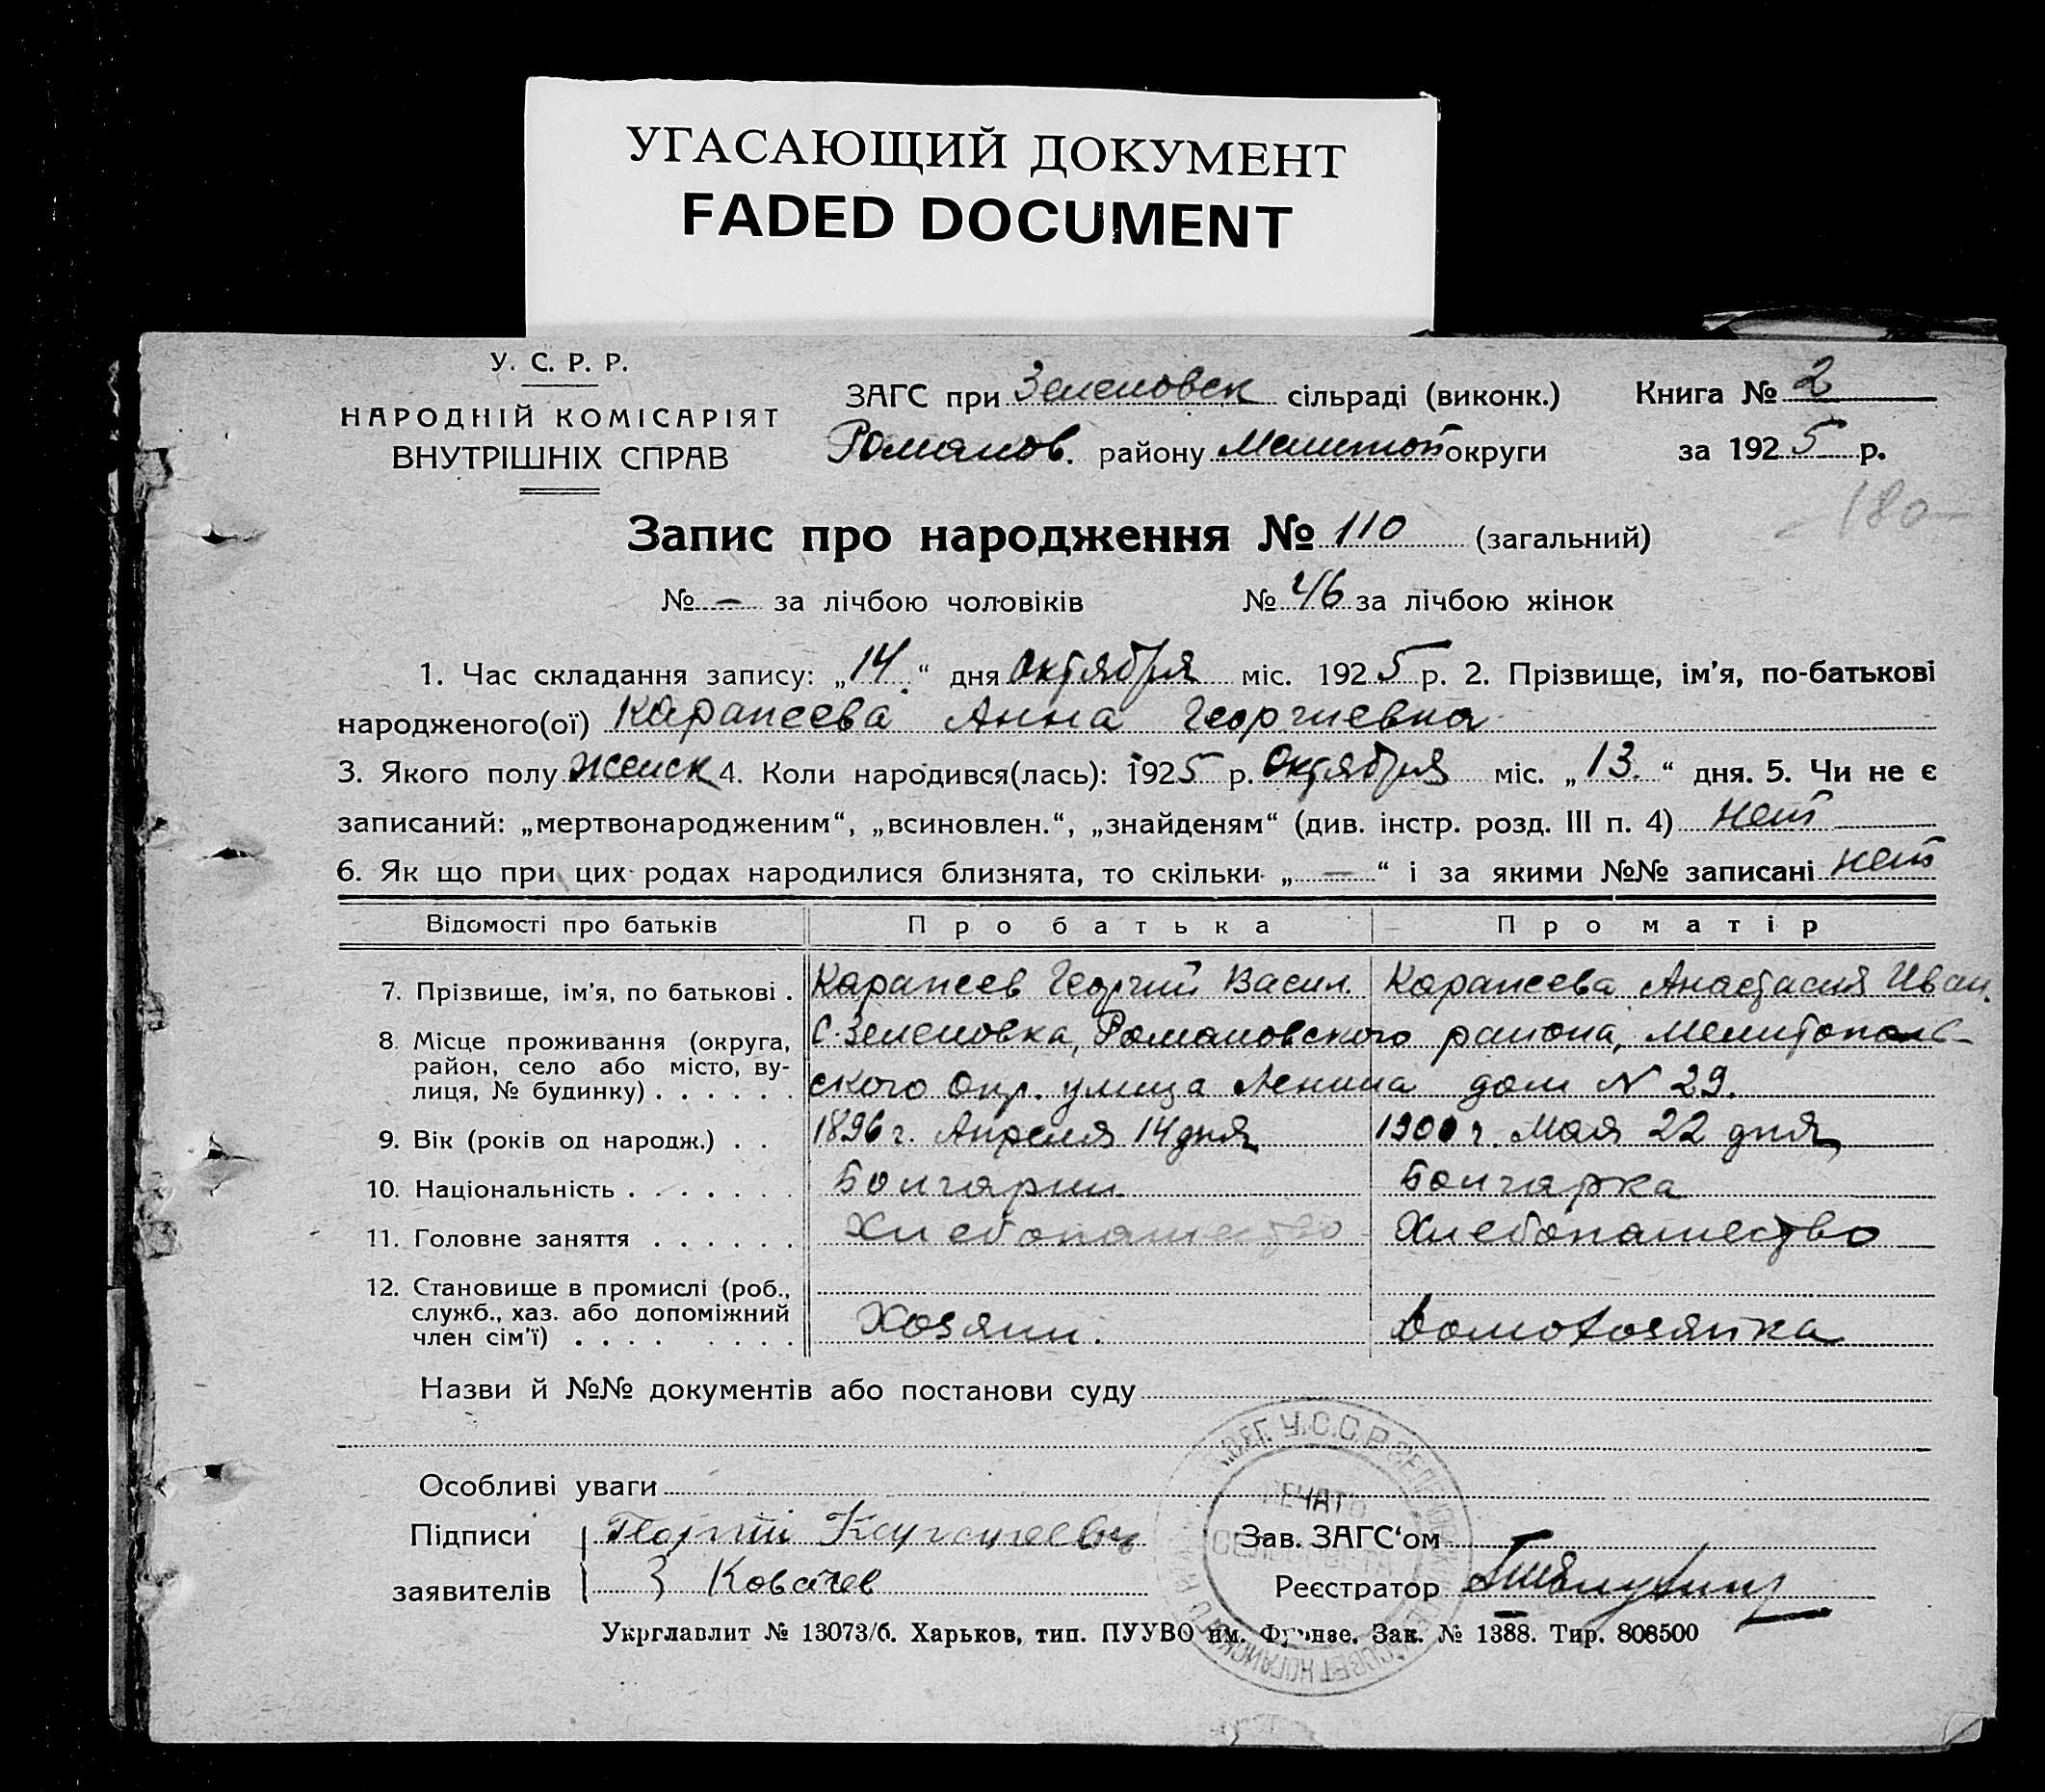 УГАСАЮЩИЙ ДОКУМЕНТ
FADED DOCUMENT
У. С. Р. Р.
НАРОДНІЙ КОМІСАРІЯТ
ВНУТРІШНІХ СПРАВ
ЗАГС при Зеленовск сільраді (виконк.)
Романов. району Мелитоп округи
Книга № 2
за 1925 р.
180
Запис про народження № 110 (загальний)
№ — за лічбою чоловіків № 46 за лічбою жінок
1. Час складання запису: „14.“ дня октября міс. 1925 р. 2. Прізвище, ім’я, по-батькові
народженого(ої) Карапеева Анна Георгиевна
3. Якого полу женск 4. Коли народився(лась): 1925 р. октября міс. „13.“ дня. 5. Чи не є
записаний: „мертвонародженим“, „всиновлен.“, „знайденям“ (див. інстр. розд. III п. 4) нет
6. Як що при цих родах народилися близнята, то скільки „—“ і за якими №№ записані нет
Відомості про батьків Про батька Про матір
7. Прізвище, ім’я, по батькові . Карапеев Георгий Васил. Карапеева Анастасия Иван.
8. Місце проживання (округа, район, село або місто, ву-
лиця, № будинку) . . . . . . С. Зеленовка, Романовского района, Мелитополь-
ского Окр. улица Ленина дом N 29.
9. Вік (років од народж.) . . 1896 г. Апреля 14 дня 1900 г. Мая 22 дня
10. Національність . . . . . . . Болгарин Болгарка
11. Головне заняття . . . . . . Хлебопашество Хлебопашество
12. Становище в промислі (роб.,
служб., хаз. або допоміжний
член сім’ї) . . . . . . . . Хозяин. Домохозяйка
Назви й №№ документів або постанови суду
Особливі уваги
Підписи Георгій
заявителів Ковачев
Зав. ЗАГС‘ом
Реєстратор
У.С.С.Р.
ПЕЧАТЬ
СЕЛЬСОВЕТА
Укрглавлит № 13073/б. Харьков, тип. ПУУВО им. Фрунзе. Зак. № 1388. Тир. 808500